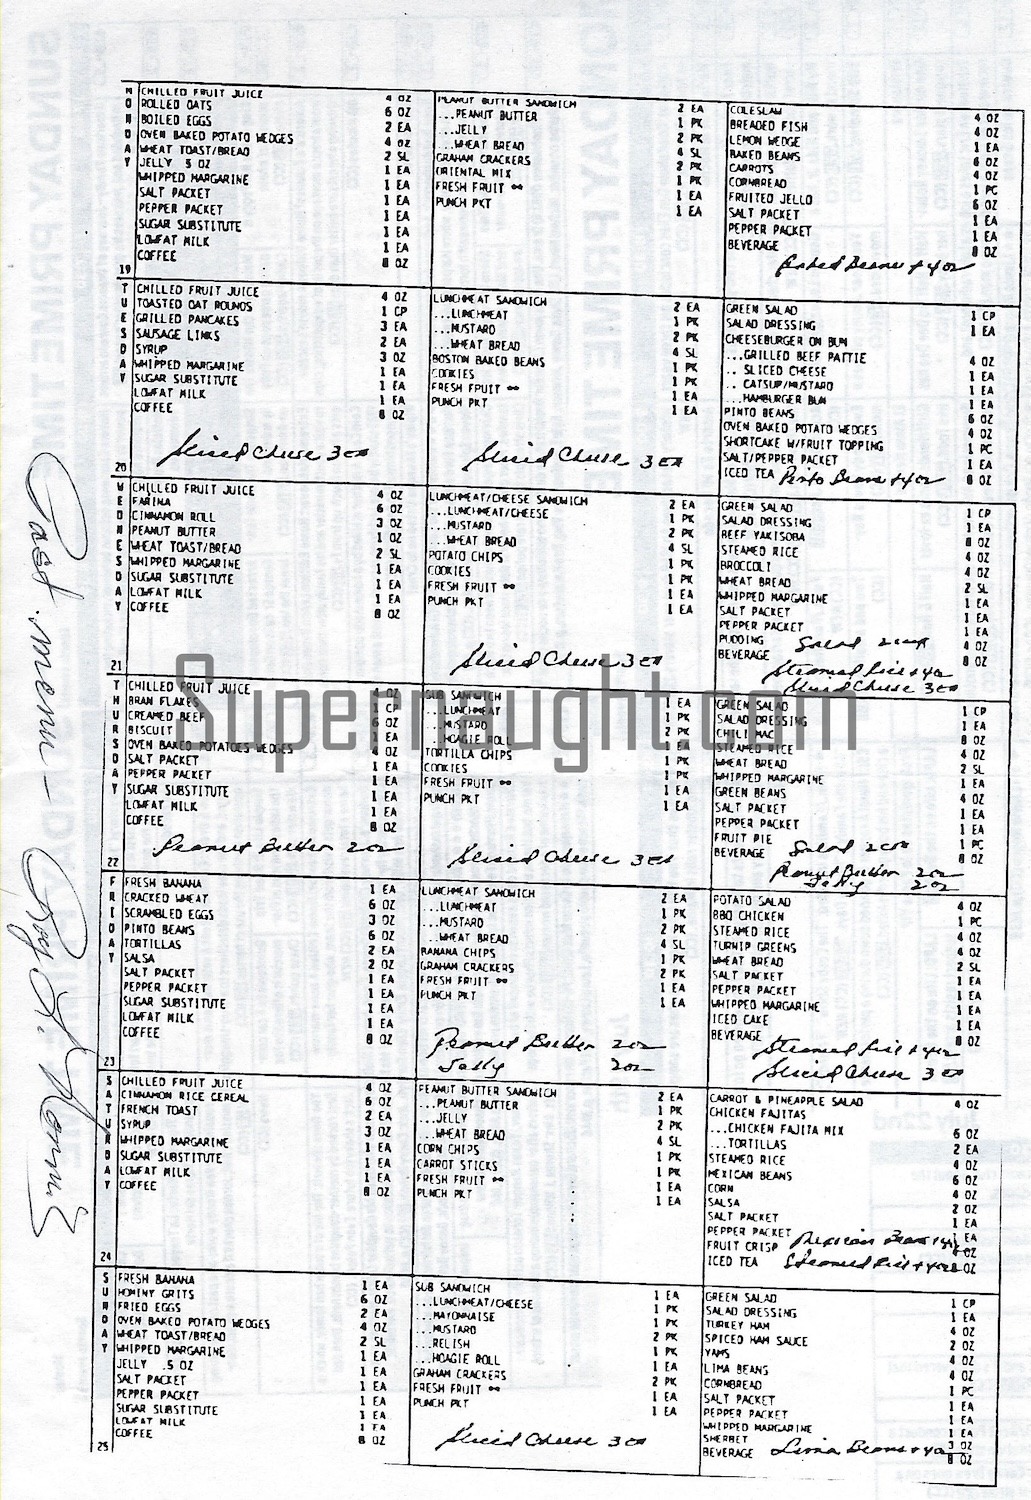 MONDAY
CHILLED FRUIT JUICE 4 OZ
ROLLED OATS 6 OZ
BOILED EGGS 2 EA
OVEN BAKED POTATO WEDGES 4 OZ
WHEAT TOAST/BREAD 2 SL
JELLY .5 OZ 1 EA
WHIPPED MARGARINE 1 EA
SALT PACKET 1 EA
PEPPER PACKET 1 EA
SUGAR SUBSTITUTE 1 EA
LOWFAT MILK 1 EA
COFFEE 8 OZ
19
PEANUT BUTTER SANDWICH 2 EA
...PEANUT BUTTER 1 PK
...JELLY 2 PK
...WHEAT BREAD 4 SL
GRAHAM CRACKERS 2 PK
ORIENTAL MIX 1 PK
FRESH FRUIT ** 1 EA
PUNCH PKT 1 EA
COLESLAW 4 OZ
BREADED FISH 4 OZ
LEMON WEDGE 1 EA
BAKED BEANS 6 OZ
CARROTS 4 OZ
CORNBREAD 1 PC
FRUITED JELLO 6 OZ
SALT PACKET 1 EA
PEPPER PACKET 1 EA
BEVERAGE 8 OZ
Baked Beans + 4 oz
TUESDAY
CHILLED FRUIT JUICE 4 OZ
TOASTED OAT ROUNDS 1 CP
GRILLED PANCAKES 3 EA
SAUSAGE LINKS 2 EA
SYRUP 3 OZ
WHIPPED MARGARINE 1 EA
SUGAR SUBSTITUTE 1 EA
LOWFAT MILK 1 EA
COFFEE 8 OZ
Sliced Cheese 3 EA
20
LUNCHMEAT SANDWICH 2 EA
...LUNCHMEAT 1 PK
...MUSTARD 2 PK
...WHEAT BREAD 4 SL
BOSTON BAKED BEANS 1 PK
COOKIES 1 PK
FRESH FRUIT ** 1 EA
PUNCH PKT 1 EA
Sliced Cheese 3 EA
GREEN SALAD 1 CP
SALAD DRESSING 1 EA
CHEESEBURGER ON BUN
...GRILLED BEEF PATTIE 4 OZ
.. SLICED CHEESE 1 EA
.. CATSUP/MUSTARD 1 EA
...HAMBURGER BUN 1 EA
PINTO BEANS 6 OZ
OVEN BAKED POTATO WEDGES 4 OZ
SHORTCAKE W/FRUIT TOPPING 1 PC
SALT/PEPPER PACKET 1 EA
ICED TEA 8 OZ
Pinto Beans + 4 oz
WEDNESDAY
CHILLED FRUIT JUICE 4 OZ
FARINA 6 OZ
CINNAMON ROLL 3 OZ
PEANUT BUTTER 1 OZ
WHEAT TOAST/BREAD 2 SL
WHIPPED MARGARINE 1 EA
SUGAR SUBSTITUTE 1 EA
LOWFAT MILK 1 EA
COFFEE 8 OZ
21
LUNCHMEAT/CHEESE SANDWICH 2 EA
...LUNCHMEAT/CHEESE 1 PK
...MUSTARD 2 PK
...WHEAT BREAD 4 SL
POTATO CHIPS 1 PK
COOKIES 1 PK
FRESH FRUIT ** 1 EA
PUNCH PKT 1 EA
Sliced Cheese 3 EA
GREEN SALAD 1 CP
SALAD DRESSING 1 EA
BEEF YAKISOBA 8 OZ
STEAMED RICE 4 OZ
BROCCOLI 4 OZ
WHEAT BREAD 2 SL
WHIPPED MARGARINE 1 EA
SALT PACKET 1 EA
PEPPER PACKET 1 EA
PUDDING 4 OZ
BEVERAGE 8 OZ
Salad 2 cup
Steamed Rice + 4 oz
Sliced Cheese 3 EA
THURSDAY
CHILLED FRUIT JUICE 4 OZ
BRAN FLAKES 1 CP
CREAMED BEEF 6 OZ
BISCUIT 1 EA
OVEN BAKED POTATOES WEDGES 4 OZ
SALT PACKET 1 EA
PEPPER PACKET 1 EA
SUGAR SUBSTITUTE 1 EA
LOWFAT MILK 1 EA
COFFEE 8 OZ
Peanut Butter 2 oz
22
SUB SANDWICH 1 EA
...LUNCHMEAT 1 PK
...MUSTARD 2 PK
...HOAGIE ROLL 1 EA
TORTILLA CHIPS 1 PK
COOKIES 1 PK
FRESH FRUIT ** 1 EA
PUNCH PKT 1 EA
Sliced Cheese 3 EA
GREEN SALAD 1 CP
SALAD DRESSING 1 EA
CHILI MAC 8 OZ
STEAMED RICE 4 OZ
WHEAT BREAD 2 SL
WHIPPED MARGARINE 1 EA
GREEN BEANS 4 OZ
SALT PACKET 1 EA
PEPPER PACKET 1 EA
FRUIT PIE 1 PC
BEVERAGE 8 OZ
Salad 2 cup
Peanut Butter 2 oz
Jelly 2 oz
FRIDAY
FRESH BANANA 1 EA
CRACKED WHEAT 6 OZ
SCRAMBLED EGGS 3 OZ
PINTO BEANS 6 OZ
TORTILLAS 2 EA
SALSA 2 OZ
SALT PACKET 1 EA
PEPPER PACKET 1 EA
SUGAR SUBSTITUTE 1 EA
LOWFAT MILK 1 EA
COFFEE 8 OZ
23
LUNCHMEAT SANDWICH 2 EA
...LUNCHMEAT 1 PK
...MUSTARD 2 PK
..WHEAT BREAD 4 SL
BANANA CHIPS 1 PK
GRAHAM CRACKERS 2 PK
FRESH FRUIT ** 1 EA
PUNCH PKT 1 EA
Peanut Butter 2 oz
Jelly 2 oz
POTATO SALAD 4 OZ
BBQ CHICKEN 1 PC
STEAMED RICE 4 OZ
TURNIP GREENS 4 OZ
WHEAT BREAD 2 SL
SALT PACKET 1 EA
PEPPER PACKET 1 EA
WHIPPED MARGARINE 1 EA
ICED CAKE 1 EA
BEVERAGE 8 OZ
Steamed Rice + 4 oz
Sliced Cheese 3 EA
SATURDAY
CHILLED FRUIT JUICE 4 OZ
CINNAMON RICE CEREAL 6 OZ
FRENCH TOAST 2 EA
SYRUP 3 OZ
WHIPPED MARGARINE 1 EA
SUGAR SUBSTITUTE 1 EA
LOWFAT MILK 1 EA
COFFEE 8 OZ
24
PEANUT BUTTER SANDWICH 2 EA
...PEANUT BUTTER 1 PK
...JELLY 2 PK
...WHEAT BREAD 4 SL
CORN CHIPS 1 PK
CARROT STICKS 1 PK
FRESH FRUIT ** 1 EA
PUNCH PKT 1 EA
CARROT & PINEAPPLE SALAD 4 OZ
CHICKEN FAJITAS
...CHICKEN FAJITA MIX 6 OZ
...TORTILLAS 2 EA
STEAMED RICE 4 OZ
MEXICAN BEANS 6 OZ
CORN 4 OZ
SALSA 2 OZ
SALT PACKET 1 EA
PEPPER PACKET 1 EA
FRUIT CRISP OZ
ICED TEA 8 OZ
Mexican Beans + 4
Steamed Rice + 4 oz
SUNDAY
FRESH BANANA 1 EA
HOMINY GRITS 6 OZ
FRIED EGGS 2 EA
OVEN BAKED POTATO WEDGES 4 OZ
WHEAT TOAST/BREAD 2 SL
WHIPPED MARGARINE 1 EA
JELLY .5 OZ 1 EA
SALT PACKET 1 EA
PEPPER PACKET 1 EA
SUGAR SUBSTITUTE 1 EA
LOWFAT MILK 1 EA
COFFEE 8 OZ
25
SUB SANDWICH 1 EA
...LUNCHMEAT/CHEESE 1 PK
...MAYONNAISE 1 PK
...MUSTARD 2 PK
...RELISH 1 PK
...HOAGIE ROLL 1 EA
GRAHAM CRACKERS 2 PK
FRESH FRUIT ** 1 EA
PUNCH PKT 1 EA
Sliced Cheese 3 EA
GREEN SALAD 1 CP
SALAD DRESSING 1 EA
TURKEY HAM 4 OZ
SPICED HAM SAUCE 2 OZ
YAMS 4 OZ
LIMA BEANS 4 OZ
CORNBREAD 1 PC
SALT PACKET 1 EA
PEPPER PACKET 1 EA
WHIPPED MARGARINE 1 EA
SHERBET 3 OZ
BEVERAGE 8 OZ
Lima Beans + 4 oz
Supernaught.com
Past menu -